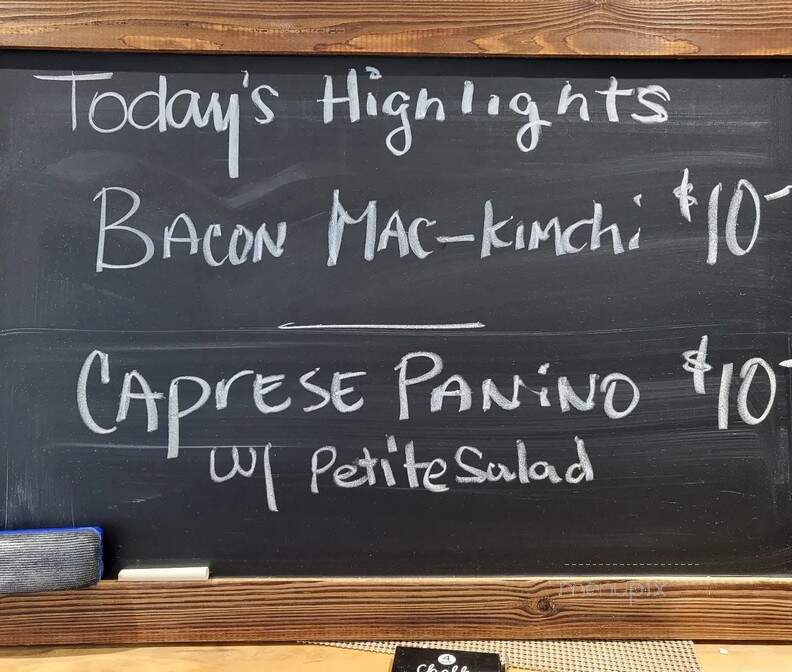 Today's Highlights
BACON MAC-KIMchi $10-
CAPrESE PANiNO $10-
w/ Petite Salad
menupix
Chalk